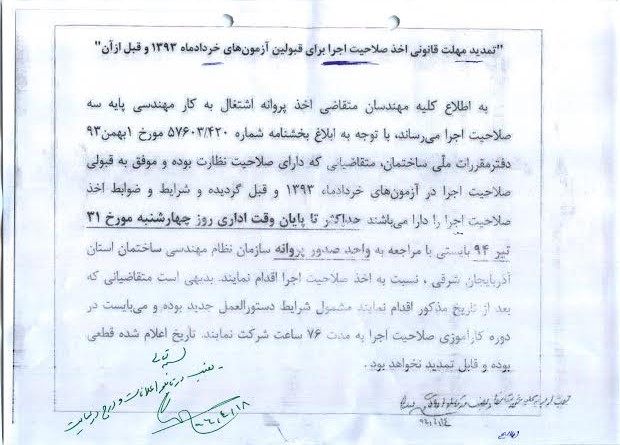 "تمدید مهلت قانونی اخذ صلاحیت اجرا برای قبولین آزمون‌های خردادماه ۱۳۹۳ و قبل ازآن"
به اطلاع کلیه مهندسان متقاضی اخذ پروانه اشتغال به کار مهندسی پایه سه
صلاحیت اجرا می‌رساند، با توجه به ابلاغ بخشنامه شماره ۵۷۶۰۳/۴۲۰ مورخ ۱بهمن۹۳
دفترمقررات ملّی ساختمان، متقاضیانی که دارای صلاحیت نظارت بوده و موفق به قبولی
صلاحیت اجرا در آزمون‌های خردادماه ۱۳۹۳ و قبل گردیده و شرایط و ضوابط اخذ
صلاحیت اجرا را دارا می‌باشند حداکثر تا پایان وقت اداری روز چهارشنبه مورخ ۳۱
تیر ۹۴ بایستی با مراجعه به واحد صدور پروانه سازمان نظام مهندسی ساختمان استان
آذربایجان شرقی ، نسبت به اخذ صلاحیت اجرا اقدام نمایند. بدیهی است متقاضیانی که
بعد از تاریخ مذکور اقدام نمایند مشمول شرایط دستورالعمل جدید بوده و می‌بایست در
دوره کارآموزی صلاحیت اجرا به مدت ۷۶ ساعت شرکت نمایند. تاریخ اعلام شده قطعی
بوده و قابل تمدید نخواهد بود .